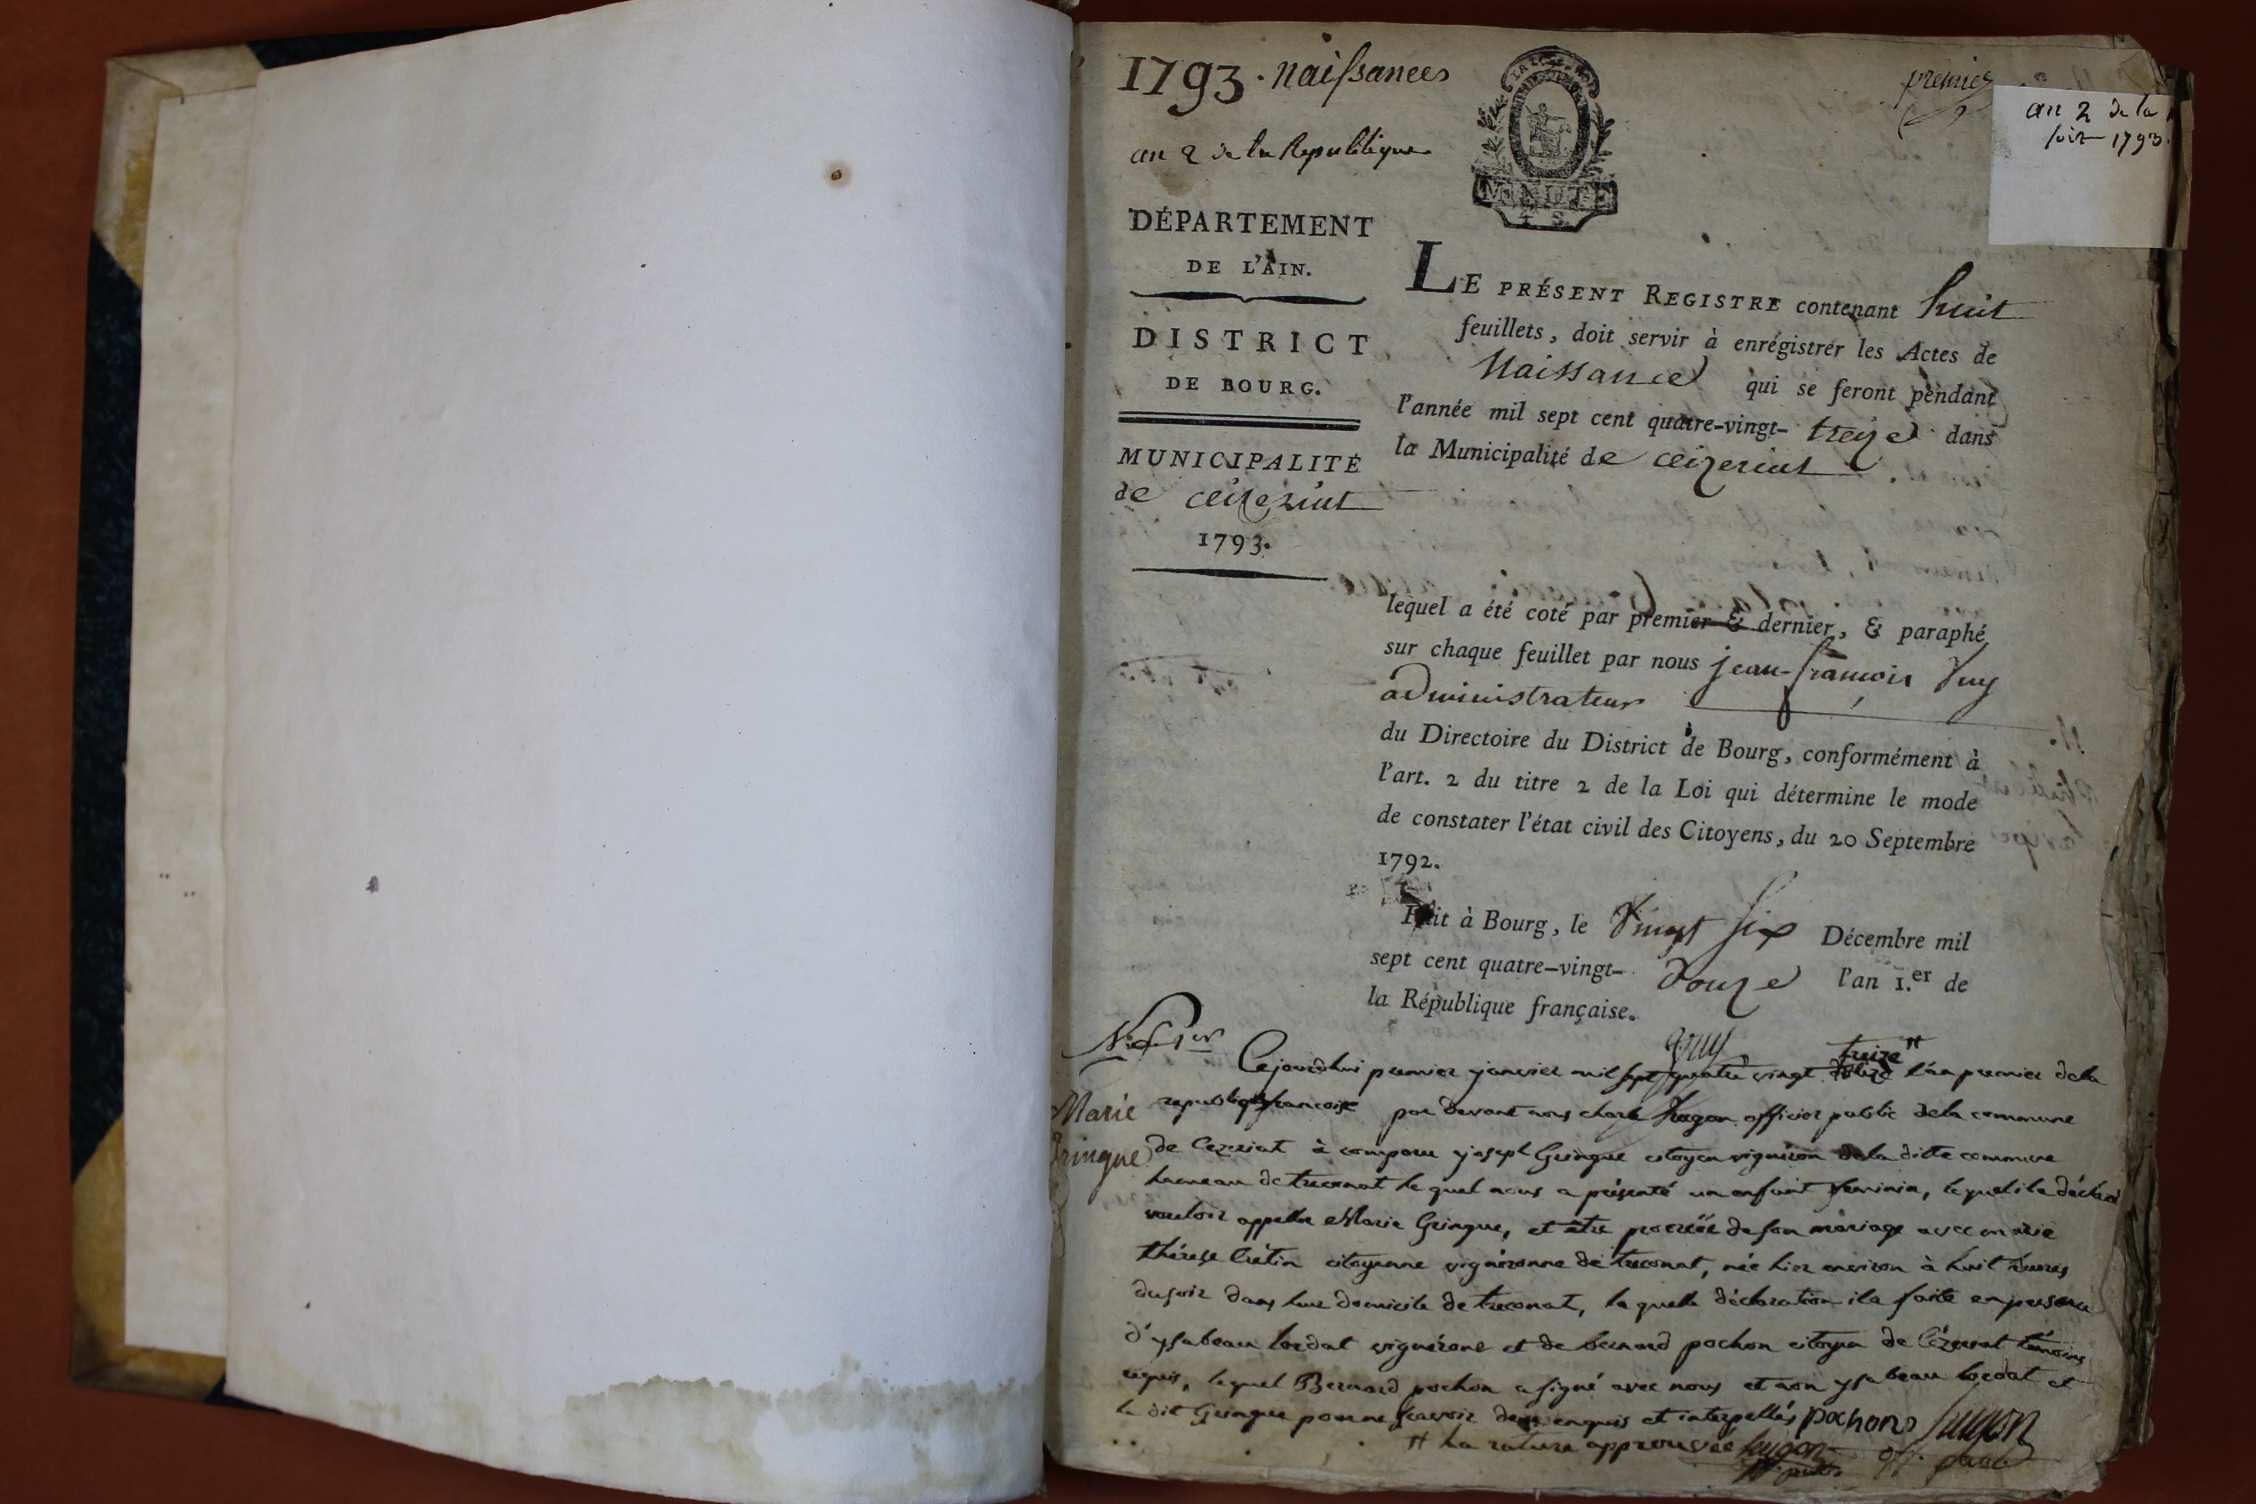 1793. naissances
premier
an 2 de la
soit 1793.
an 2 de la Republique
MINUTE
4 S.
DÉPARTEMENT
DE L'AIN.
DISTRICT
DE BOURG.
MUNICIPALITÉ
de ceizeriat
1793.
LE PRÉSENT REGISTRE contenant huit
feuillets, doit servir à enrégistrer les Actes de
Naissance qui se feront pendant
l'année mil sept cent quatre-vingt- treize dans
la Municipalité de ceizeriat
lequel a été coté par premier & dernier, & paraphé
sur chaque feuillet par nous jean-françois
administrateur
du Directoire du District de Bourg, conformément à
l'art. 2 du titre 2 de la Loi qui détermine le mode
de constater l'état civil des Citoyens, du 20 Septembre
1792.
Fait à Bourg, le Vingt six Décembre mil
sept cent quatre-vingt- Douze l'an 1.er de
la République française.
N.o 1er
treize
Cejourdhui premier janvier mil sept quatre vingt l'an premier de la
Marie
republique francoise par devant nous officier public de la commune
Gringue
de Cezeriat à comparu joseph Gringue citoyen vigneron de la ditte commune
hameau de treconat lequel nous a présenté un enfant feminin, lequel il a déclaré
vouloir appeller Marie Gringue, et être procréée de son mariage avec marie
thérese Crétin citoyenne vigneronne de treconat, née hier environ à huit heures
du soir dans leur domicile de treconat, laquelle déclaration il a faite en presence
d'ysabeau vignérone et de bernard pochon citoyen de Cézeriat témoins
requis, lequel Bernard pochon a signé avec nous et non ysabeau et
le dit Gringue pour ne sçavoir de ce enquis et interpellés pochon
la rature approuvée
off. public